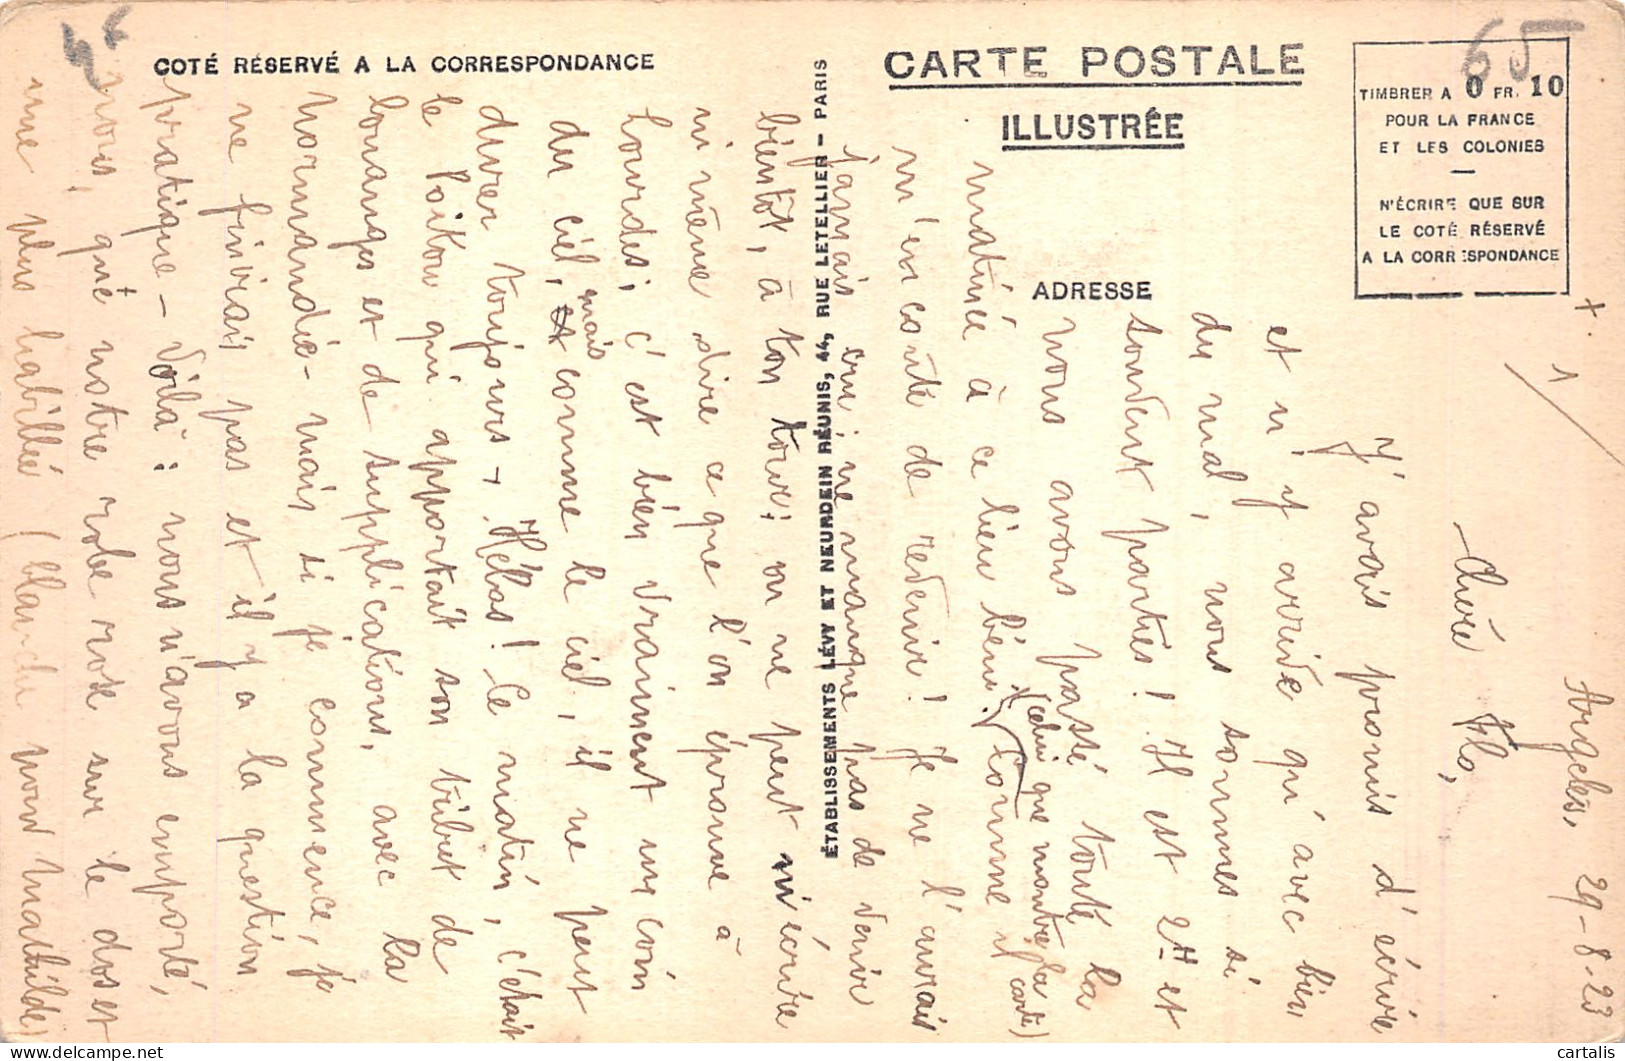 COTÉ RÉSERVÉ A LA CORRESPONDANCE
CARTE POSTALE
ILLUSTRÉE
ADRESSE
65
TIMBRER A 0 FR. 10
POUR LA FRANCE
ET LES COLONIES
N'ÉCRIRE QUE SUR
LE COTÉ RÉSERVÉ
A LA CORRESPONDANCE
ÉTABLISSEMENTS LÉVY ET NEURDEIN RÉUNIS, 44, RUE LETELLIER - PARIS
1
Argelès, 29-8-23
Chère Flo,
J'avais promis d'écrire
et n'y arrive qu'avec bien
du mal, nous sommes si
souvent parties! Il est 2H et
nous avons passé toute la
(celui que montre la carte)
matinée à ce lieu béni. Comme il
m'en coûte de revenir! Je ne l'aurais
jamais cru; ne manque pas de venir
bientôt, à ton tour; on ne peut ni écrire
ni même dire ce que l'on éprouve à
Lourdes; c'est bien vraiment un coin
du ciel, mais comme le ciel, il ne peut
durer toujours. Hélas! Ce matin, c'était
le Poitou qui apportait son tribut de
louanges et de supplications, avec la
Normandie - mais si je commence, je
ne finirais pas et il y a la question
pratique - Voilà: nous n'avons emporté,
nous, que notre robe rose sur le dos et
une plus habillée (blanche pour Mathilde)
cartalis